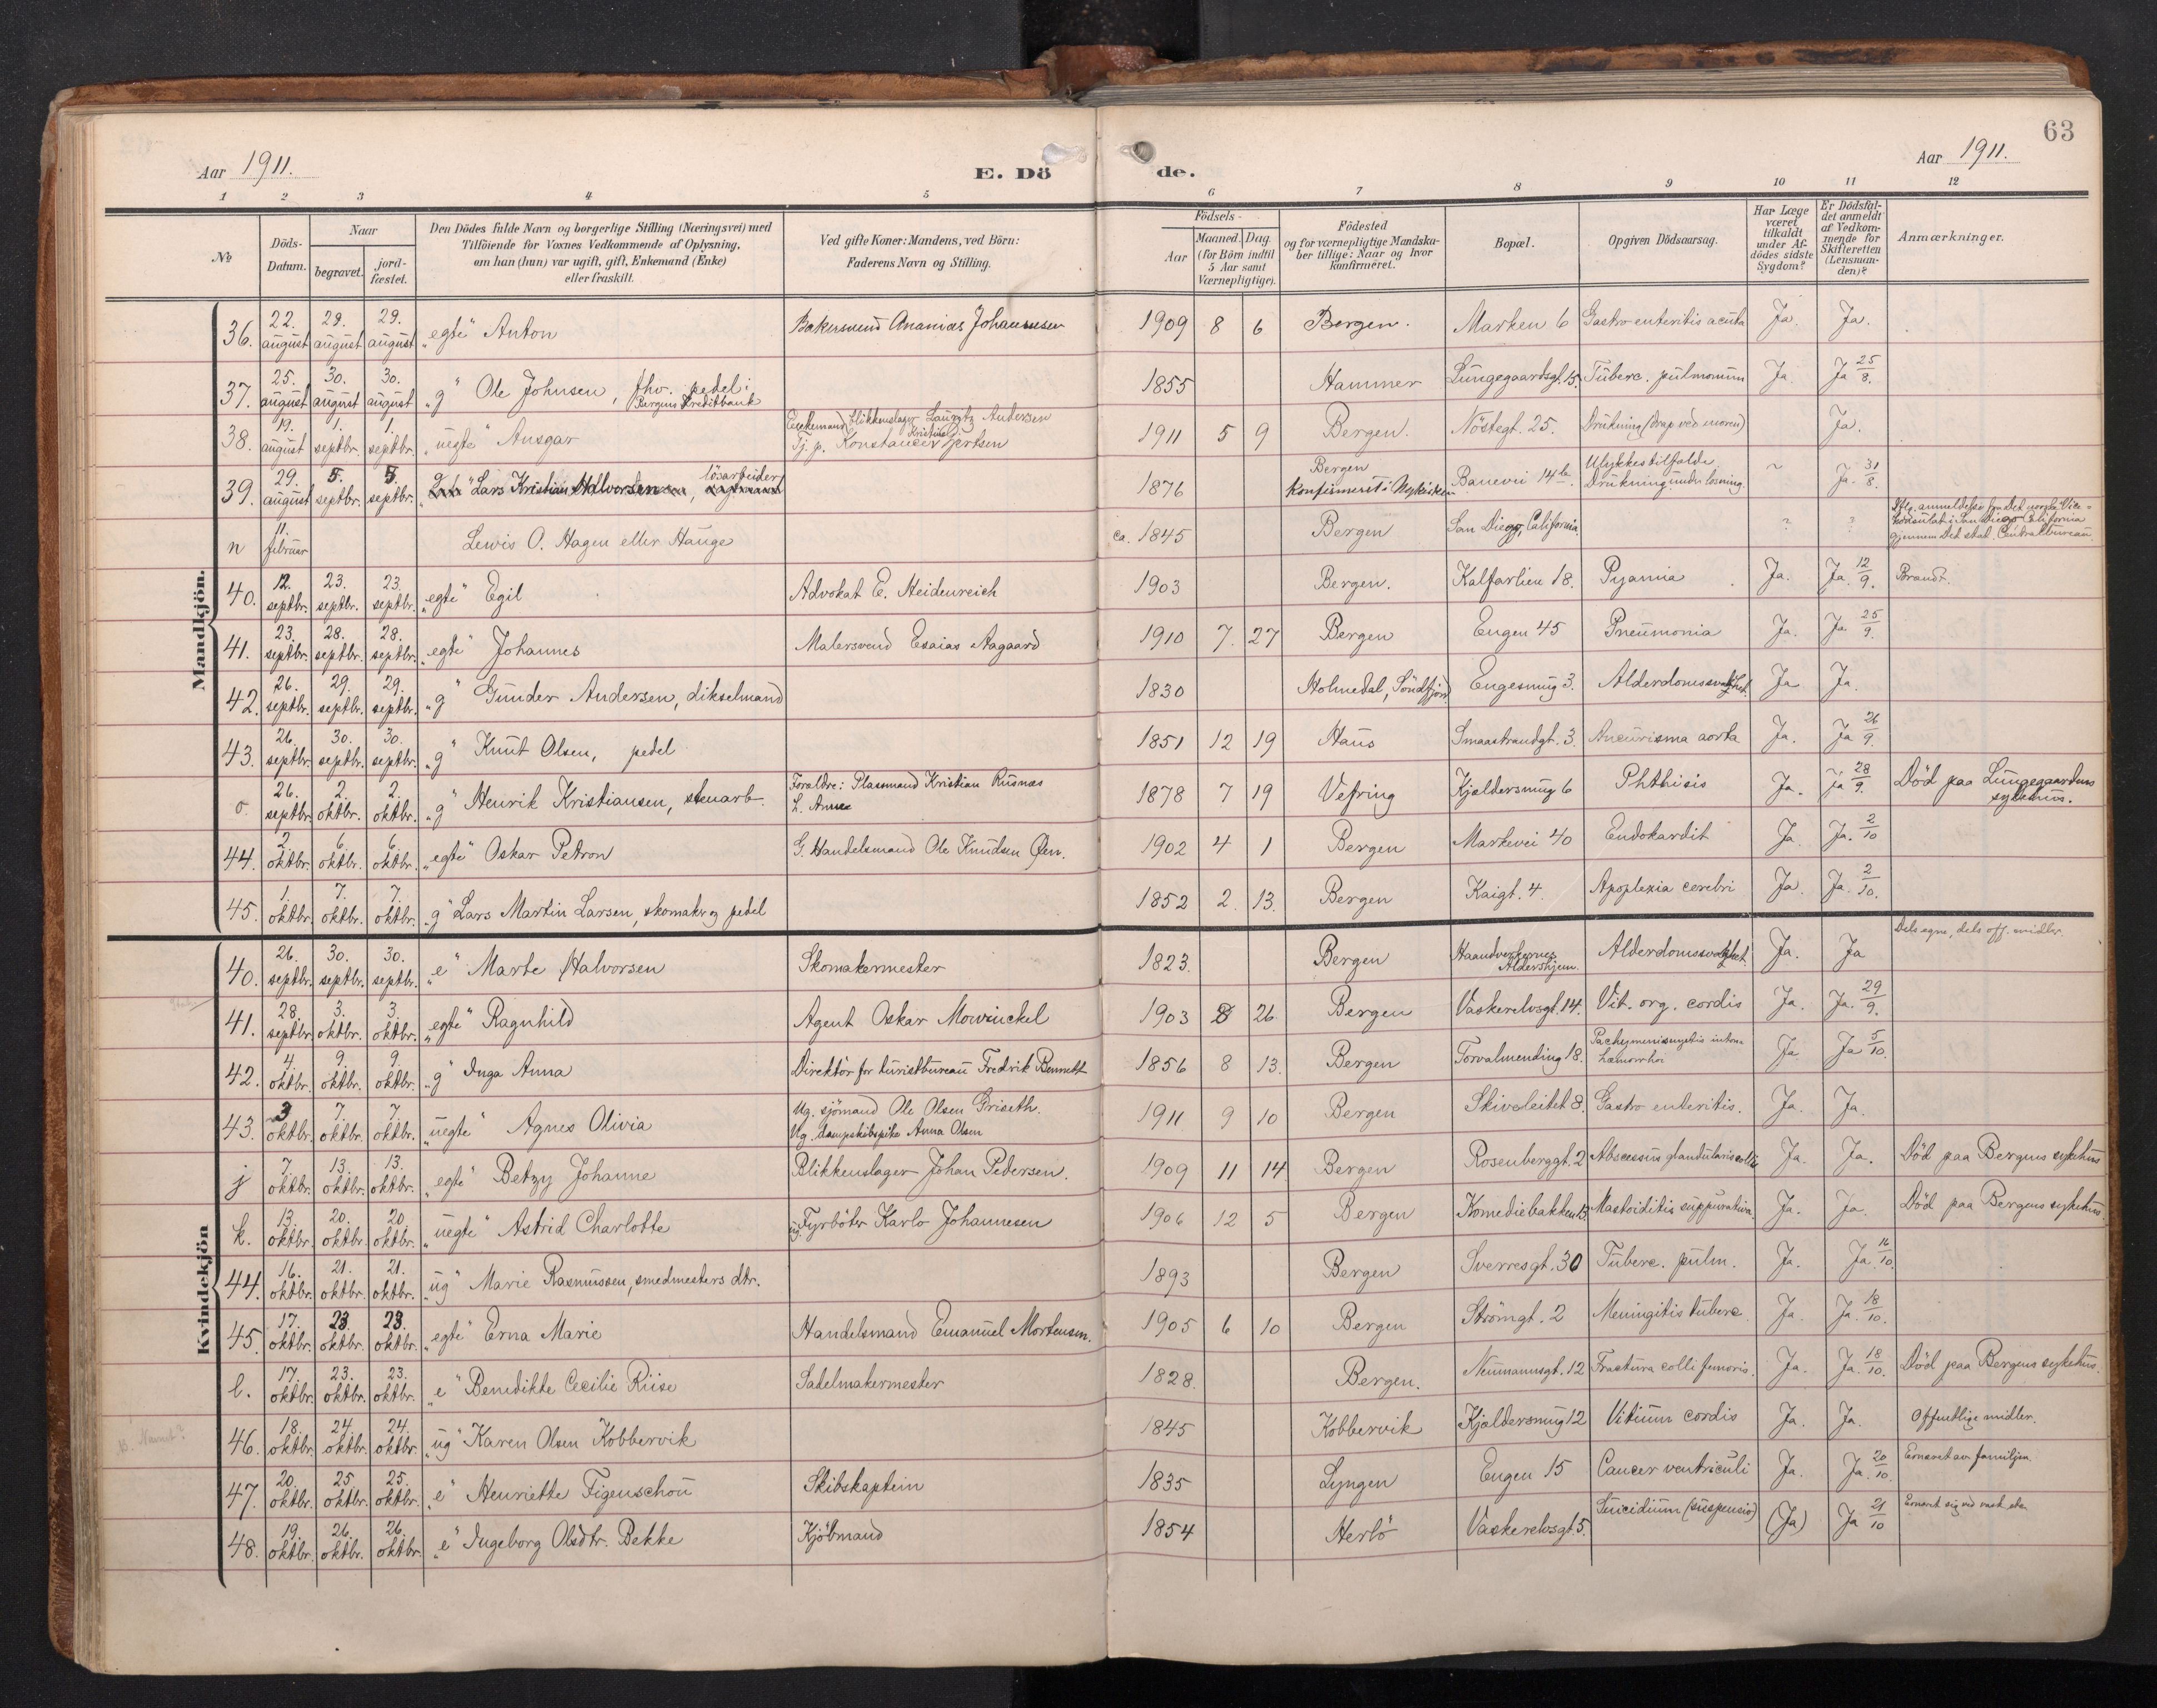 63
Aar 1911.
E. Dö
de.
Aar 1911.
1 2 3 4 5 6 7 8 9 10 11 12
№
Döds-Datum.
Naar
begravet.
jord-fæstet.
Den Dödes fulde Navn og borgerlige Stilling (Næringsvei) med
Tilföiende for Voxnes Vedkommende af Oplysning,
om han (hun) var ugift, gift, Enkemand (Enke)
eller fraskilt.
Ved gifte Koner: Mandens, ved Börn:
Faderens Navn og Stilling.
Födsels-
Aar
Maaned. Dag.
(for Börn indtil
5 Aar samt
Værnepligtige).
Födested
og for værnepligtige Mandska-
ber tillige: Naar og hvor
konfirmeret.
Bopæl.
Opgiven Dödsaarsag.
Har Læge
været
tilkaldt
under Af-
dödes sidste
Sygdom?
Er Dödsfal-
det anmeldt
af Vedkom-
mende for
Skifteretten
(Lensman-
den)?
Anmærkninger.
Mandkjön.
36. 22. august 29. august 29. august „egte“ Anton Bakersvend Ananias Johannesen 1909 8 6 Bergen. Marken 6 Gastro enteritis acuta Ja. Ja.
37. 25. august 30. august 30. august „g“ Ole Johnsen, fhv. pedel i Bergens Kreditbank 1855 Hammer Lungegaardsgt. 15. Tuberc. pulmonum Ja. Ja 25/8.
38. 19. august 1. septbr. 1. septbr. „uegte“ Ansgar Enkemand blikkenslager Lauritz Andersen
Tj. p. Konstance Kristine Gjertsen 1911 5 9 Bergen. Nöstegt. 25. Drukning (drap ved moren) Ja.
39. 29. august 5. septbr. 5. septbr. Lars Kristian Halvorsen, lösarbeider 1876 Bergen
Konfirmert i Nykirken Banevei 14 b. Ulykkestilfælde
Drukning under losning. ~ Ja. 31/8.
n 11. februar Lewis O. Hagen eller Hauge ca. 1845 Bergen San Diego, California. ? ? Iflg. anmeldelse fra det norske Vice-
konsulat i San Diego California
gjennem Det stat. Centralbureau.
40. 12. septbr. 23. septbr. 23. septbr. „egte“ Egil Advokat E. Heidenreich 1903 Bergen. Kalfarlien 18. Pyæmia Ja. Ja. 12/9. Brandt.
41. 23. septbr. 28. septbr. 28. septbr. „egte“ Johannes Malersvend Esaias Aagaard 1910 7. 27 Bergen Engen 45 Pneumonia Ja. Ja 25/9.
42. 26. septbr. 29. septbr. 29. septbr. „g“ Gunder Andersen, dikselmand 1830 Holmedal, Söndfjord Engesmug 3. Alderdomssvakhet. Ja Ja.
43. 26. septbr. 30. septbr. 30. septbr. „g“ Knut Olsen, pedel 1851 12 19 Haus Smaastrandgt. 3. Aneurisma aorta Ja. Ja 26/9.
o. 26. septbr. 2. oktbr. 2. oktbr. „g“ Henrik Kristiansen, stenarb. Forældre: Plassmand Kristian Rusnæs
L. Anne 1878 7 19 Vefring Kjeldersmug 6 Phthisis Ja. ja 28/9. Död paa Lungegaardens
sykehus.
44. 2. oktbr. 6. oktbr. 6. oktbr. „egte“ Oskar Petron G. Handelsmand Ole Knudsen Øen. 1902 4 1 Bergen Markevei 40 Endokardit Ja. Ja. 2/10
45. 1. oktbr. 7. oktbr. 7. oktbr. „g“ Lars Martin Larsen, skomaker og pedel 1852 2. 13. Bergen Kaigt. 4. Apoplexia cerebri Ja. Ja. 2/10.
Kvindekjön
40. 26. septbr. 30. septbr. 30. septbr. „e“ Marte Halvorsen Skomakermester 1823. Bergen Haandverkernes
Aldershjem. Alderdomssvakhet. Ja. Ja Dels egne, dels off. midler.
41. 28. septbr. 3. oktbr. 3. oktbr. „egte“ Ragnhild Agent Oskar Mowinckel 1903 8 26 Bergen Vaskerelvsgt. 14. Vit. org. cordis Ja. Ja. 29/9.
42. 4. oktbr. 9. oktbr. 9. oktbr. „g“ Inga Anna Direktör for turistbureau Fredrik Bennett 1856 8 13. Bergen Torvalmending 18. Pachymeningitis interna
hæmorrhoi Ja Ja 5/10.
43. 3 oktbr. 7. oktbr. 7. oktbr. „uegte“ Agnes Olivia Ug. sjömand Ole Olsen Griseth.
Ug. dampskibspike Anna Olsen 1911 9 10 Bergen Skiveleitet 8. Gastro enteritis. Ja. Ja.
j 7. oktbr. 13. oktbr. 13. oktbr. „egte“ Betzy Johanne Blikkenslager Johan Pedersen. 1909 11 14 Bergen Rosenberggt. 2 Abscessus glandularis colli Ja. Ja. Död paa Bergens sykehus
k. 13. oktbr. 20. oktbr. 20. oktbr. „uegte“ Astrid Charlotte ug. Fyrböter Karlo Johannesen 1906 12 5 Bergen Komediebakken 13. Mastoiditis suppurativa. Ja. Ja. Död paa Bergens sykehus.
44. 16. oktbr. 21. oktbr. 21. oktbr. „ug“ Marie Rasmussen, smedmesters dtr. 1893 Bergen Sverresgt. 30 Tuberc. pulm. Ja. Ja. 16/10.
45. 17. oktbr. 23. oktbr. 23. oktbr. „egte“ Erna Marie Handelsmand Emanuel Mortensen. 1905 6 10 Bergen Strömgt. 2 Meningitis tuberc. Ja. Ja. 18/10.
l. 17. oktbr. 23. oktbr. 23. oktbr. „e“ Benedikte Cecilie Riise Sadelmakermester 1828. Bergen. Neumannsgt. 12 Fractura colli femoris. Ja. Ja. 18/10. Död paa Bergens sykehus.
46. 18. oktbr. 24. oktbr. 24. oktbr. „ug“ Karen Olsen Kobbervik 1845 Kobbervik Kjeldersmug 12 Vitium cordis Ja. Ja. Offentlige midler.
47. 20. oktbr. 25 oktbr. 25. oktbr. „e“ Henriette Figenschou Skibskaptein 1835 Lyngen Engen 15 Cancer ventriculi Ja. Ja. 20/10. Ernæret av familjen.
48. 19. oktbr. 26. oktbr. 26. oktbr. „e“ Ingeborg Olsdtr. Bekke Kjöbmand 1854 Herlö Vaskerelvsgt. 5. Suicidium (suspensio) (Ja) Ja 21/10 Ernært sig ved vask